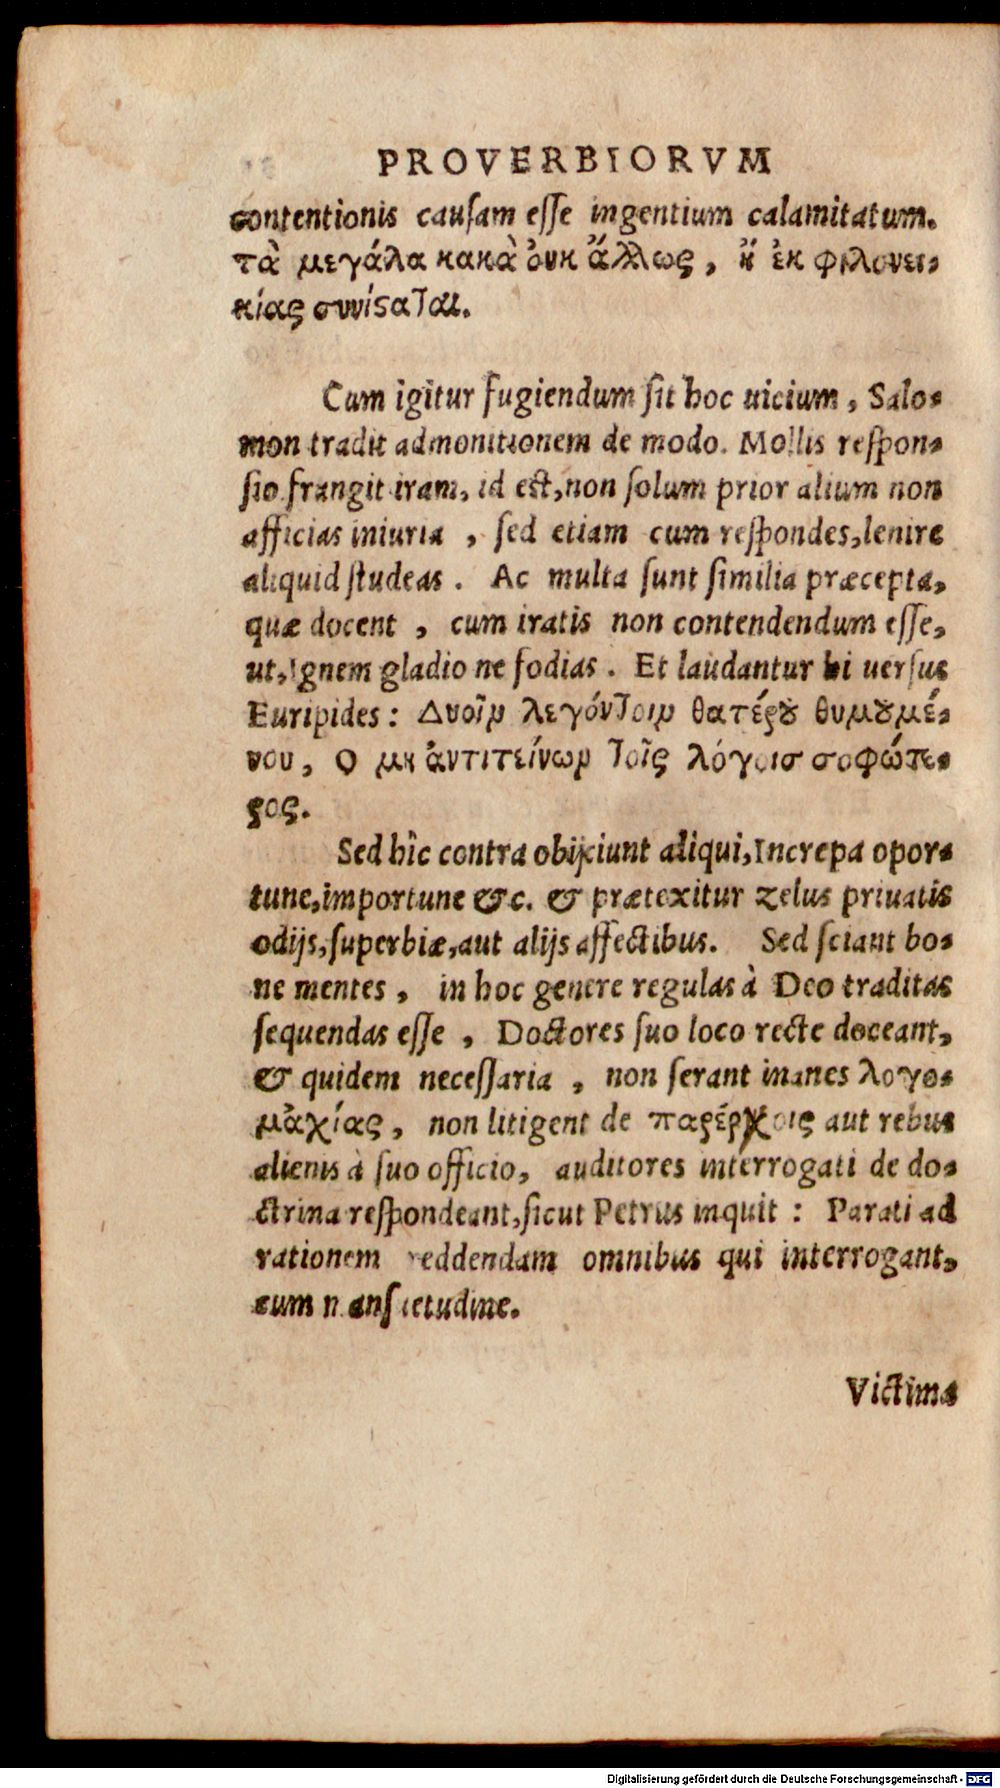 PROVERBIORVM
contentionis causam esse ingentium calamitatum.
τὰ μεγάλα κακὰ ὀυκ ἄλλως, ἢ ἐκ φιλονει-
κίας συνίσαται.
Cum igitur fugiendum sit hoc uicium, Salo-
mon tradit admonitionem de modo. Mollis respon-
sio frangit iram, id est, non solum prior alium non
afficias iniuria, sed etiam cum respondes, lenire
aliquid studeas. Ac multa sunt similia præcepta,
quæ docent, cum iratis non contendendum esse,
ut, Ignem gladio ne fodias. Et laudantur hi uersus
Euripides: Δυοῖν λεγόντοιν θατέρȣ θυμȣμέ-
νου, Ο μὴ ἀντιτείνων τοῖς λόγοισ σοφώτε-
ρος.
Sed hîc contra obijciunt aliqui, Increpa opor-
tune, importune &c. & prætexitur zelus priuatis
odijs, superbiæ, aut alijs affectibus. Sed sciant bo-
ne mentes, in hoc genere regulas à Deo traditas
sequendas esse, Doctores suo loco recte doceant,
& quidem necessaria, non serant inanes λογο-
μαχίας, non litigent de παρέργοις aut rebus
alienis à suo officio, auditores interrogati de do-
ctrina respondeant, sicut Petrus inquit: Parati ad
rationem reddendam omnibus qui interrogant,
cum mansuetudine.
Victima
Digitalisierung gefördert durch die Deutsche Forschungsgemeinschaft - DFG